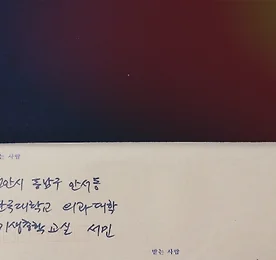 는 사람
안시 동남구 안서동
국대학교 의과대학
기생충학교실 서민
받는 사람